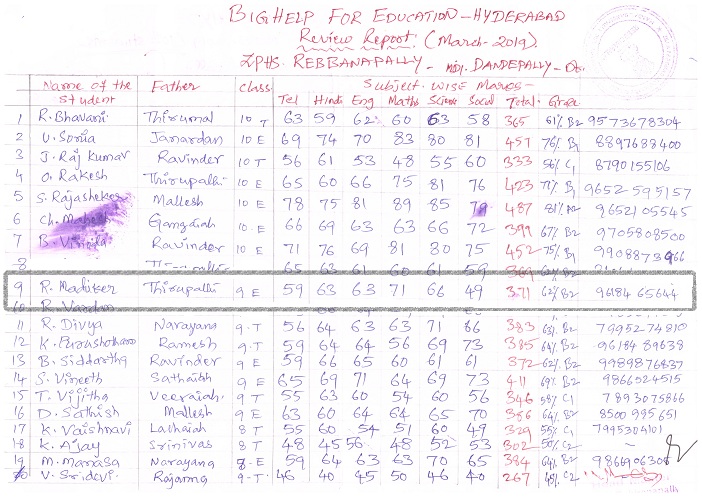 BIGHELP FOR EDUCATION - HYDERABAD
Review Report (March-2019).
ZPHS. REBBANAPALLY - DANDEPALLY -
Name of the Student Father Class Subject wise Marks -
Tel Hindi Eng Maths Science Social Total Grade
1 R. Bhavani Thirumal 10 T 63 59 62 60 63 58 365 61% B2 9573678304
2 V. Sonia Janardan 10 E 69 74 70 83 80 81 457 76% B1 8897688400
3 J. Raj Kumar Ravinder 10 T 56 61 53 48 55 60 333 56% C1 8790155106
4 O. Rakesh Thirupathi 10 E 65 60 66 75 81 76 423 71% B1 9652595157
5 S. Rajashekar Mallesh 10 E 78 75 81 89 85 79 487 81% A2 9652105545
6 Ch. Mahesh Gangaiah 10 E 66 69 63 63 66 72 399 67% B2 9705808500
7 B. Ravinder 10 E 71 76 69 81 80 75 452 75% B1
8 65 63 61 60 61 59 369
9 R. Thirupathi 9 E 59 63 63 71 66 49 371 62% B2 96184 65644
10 R. Vardan
11 R. Divya Narayana 9 T 56 64 63 63 71 86 383 63% B2 7995274810
12 K. Purushotham Ramesh 9 T 59 64 64 56 69 73 385 64% B2 96184 89638
13 B. Siddartha Ravinder 9 E 59 66 65 60 61 61 372 62% B2 9989876837
14 S. Vineeth Sathaiah 9 E 65 69 71 64 69 73 411 69% B2 9866024515
15 T. Vijitha Veeraiah 9 T 55 63 60 54 60 56 346 58% C1 7893075866
16 D. Sathish Mallesh 9 E 63 60 64 64 65 70 386 64% B2 8500 995651
17 K. Vaishnavi Lachaiah 8 T 55 60 54 51 60 49 329 55% C1 7995304101
18 K. Ajay Srinivas 8 T 48 45 56 48 52 53 302 50% C2
19 M. Manasa Narayana 8 E 59 64 63 63 70 65 384 64% B2 9866906308
20 V. Sridevi Rajanna 9 T 46 40 45 50 46 40 267 45% C2